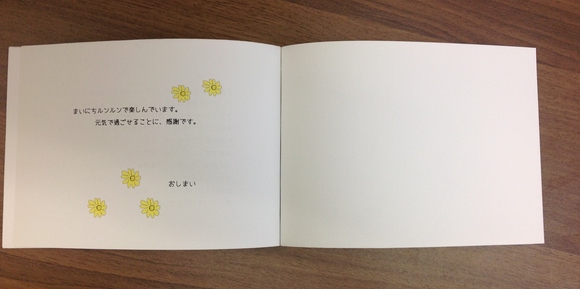 まいにちルンルンで楽しんでいます。
元気で過ごせることに、感謝です。
おしまい